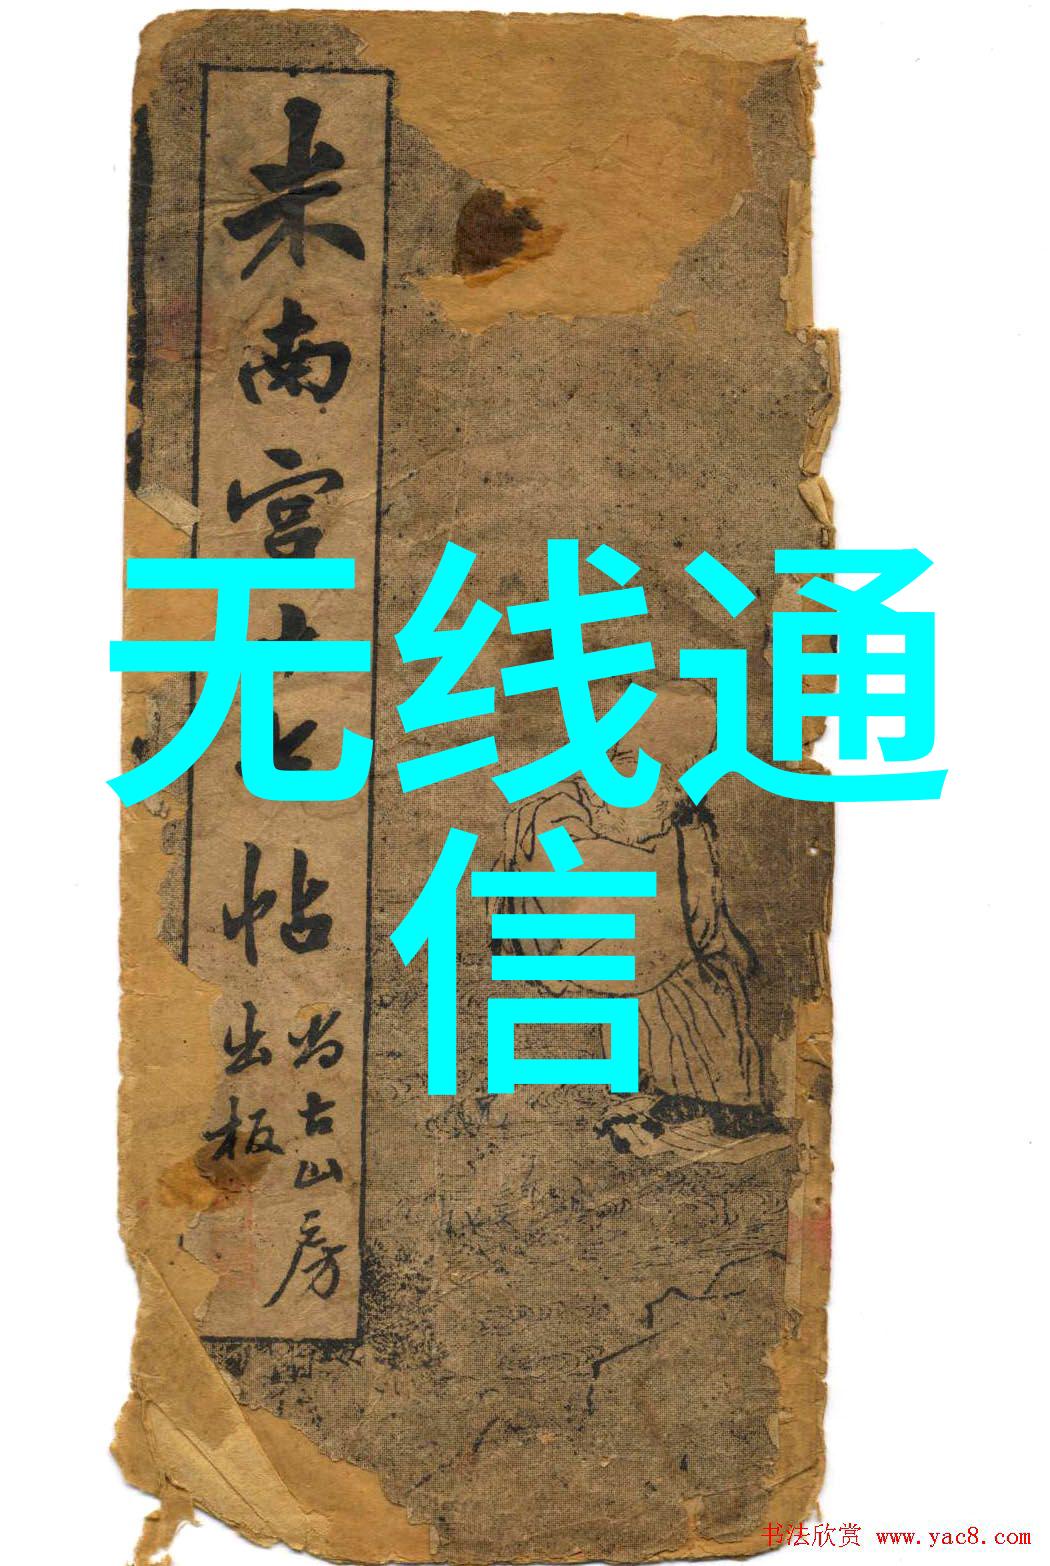 米南宮
帖
尚古山房
出板
无线通
信
书法欣赏 www.yac8.com